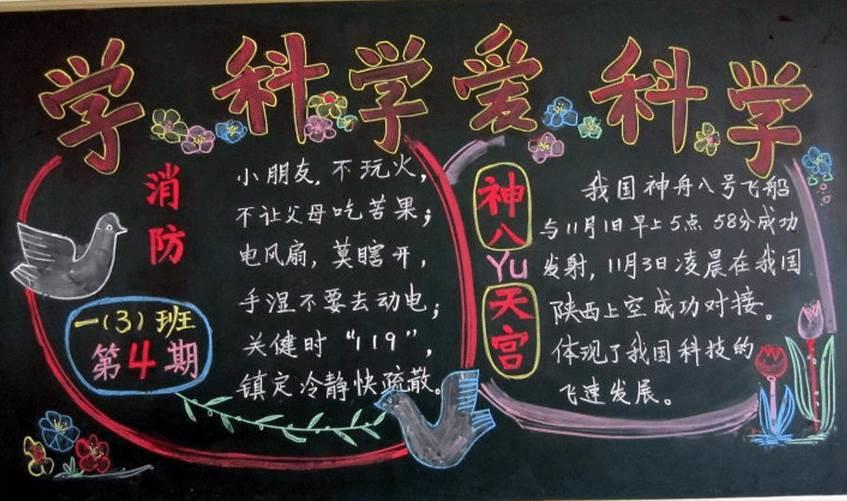 学科学爱科学
消防
小朋友，不玩火，
不让父母吃苦果；
电风扇，莫瞎开，
手湿不要去动电；
关健时“119”，
镇定冷静快疏散。
一（3）班
第4期
神八
Yu
天宫
我国神舟八号飞船
与11月1日早上5点58分成功
发射，11月3日凌晨在我国
陕西上空成功对接。
体现了我国科技的
飞速发展。